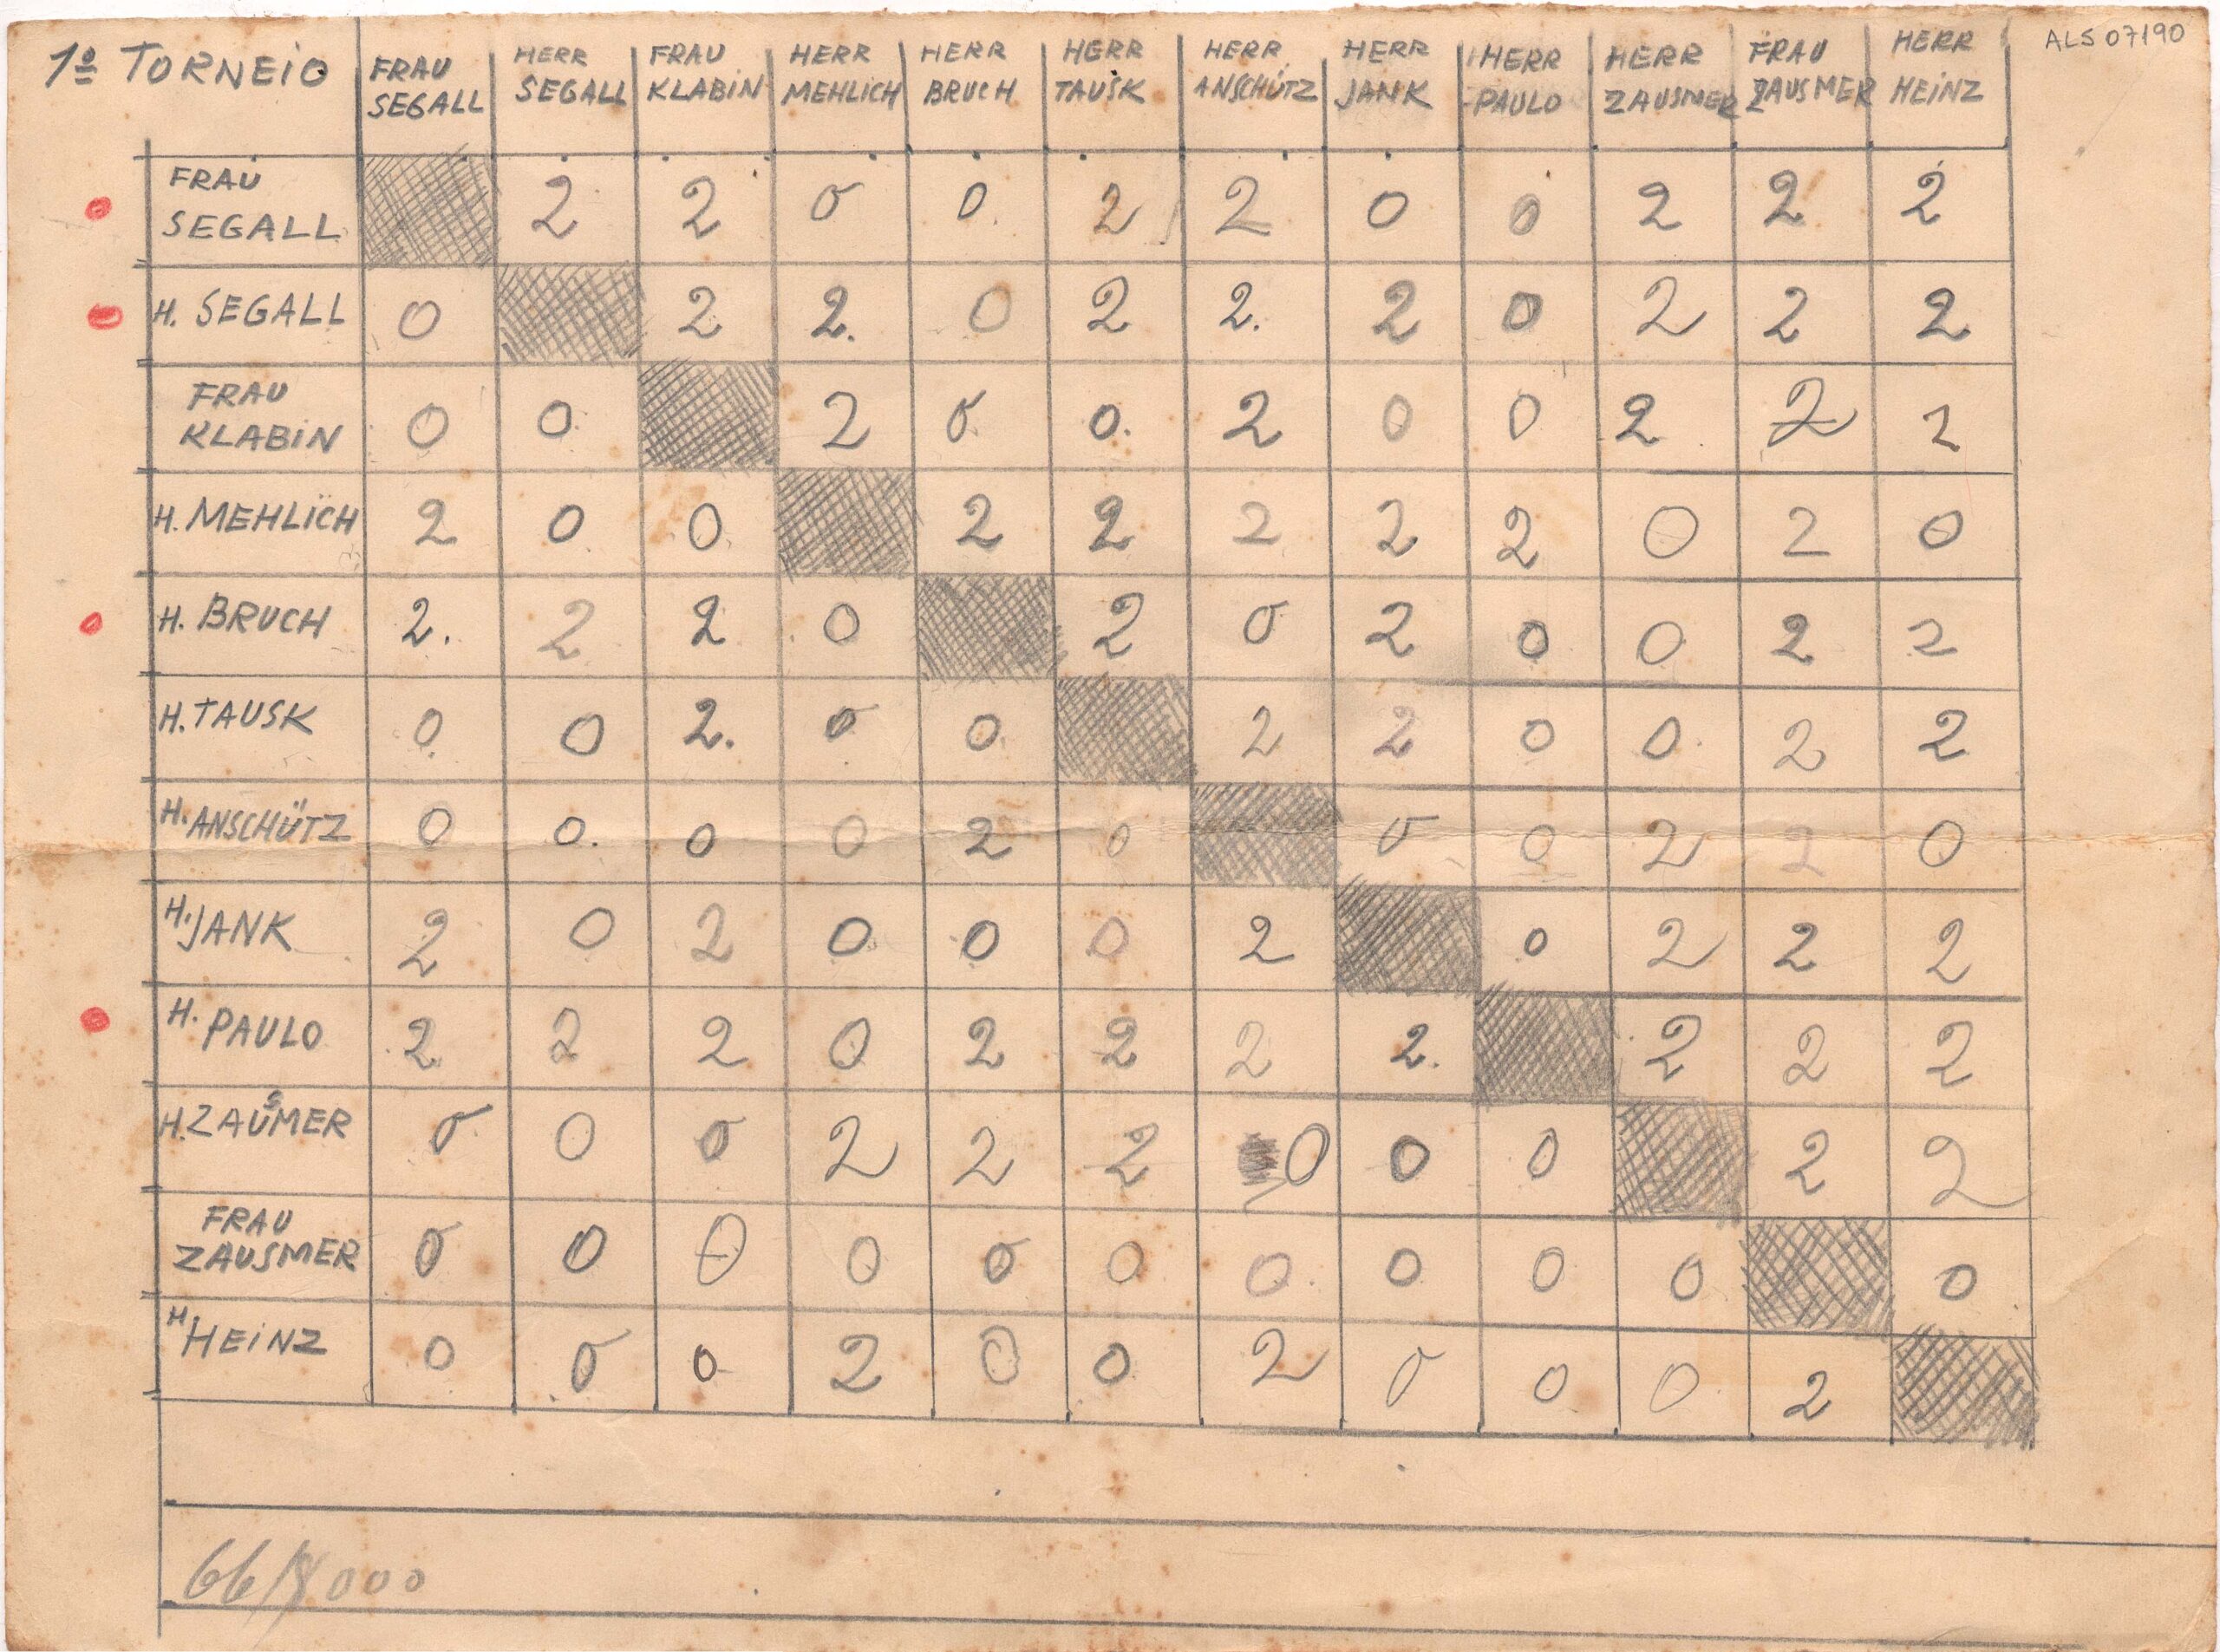 ALS 07190
1º TORNEIO FRAU SEGALL HERR SEGALL FRAU KLABIN HERR MEHLICH HERR BRUCH HERR TAUSK HERR ANSCHÜTZ HERR JANK HERR PAULO HERR ZAUSMER FRAU ZAUSMER HERR HEINZ
FRAU SEGALL 2 2 0 0 2 2 0 0 2 2 2
H. SEGALL 0 2 2. 0 2 2. 2 0 2 2 2
FRAU KLABIN 0 0 2 0 0. 2 0 0 2 2 2
H. MEHLICH 2 0 0 2 2 2 2 2 0 2 0
H. BRUCH 2. 2 2 0 2 0 2 0 0 2 2
H. TAUSK 0 0 2. 0 0 2 2 0 0 2 2
H. ANSCHÜTZ 0 0. 0 0 2 0 0 0 2 2 0
H. JANK 2 0 2 0 0 0 2 0 2 2 2
H. PAULO 2 2 2 0 2 2 2 2. 2 2 2
H. ZAUSMER 0 0 0 2 2 2 0 0 0 2 2
FRAU ZAUSMER 0 0 0 0 0 0 0 0 0 0 0
H HEINZ 0 0 0 2 0 0 2 0 0 0 2